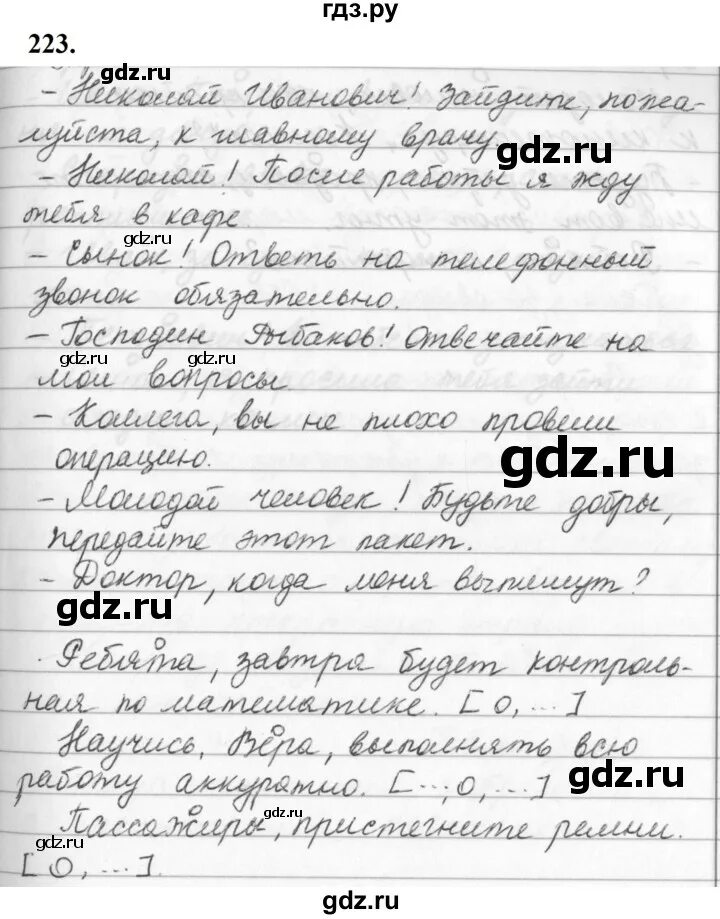 гдз.ру
223.
gdz.ru
– Николай Иванович! Зайдите, пожа-
луйста, к главному врачу.
gdz.ru
– Николай! После работы я жду
тебя в кафе.
gdz.ru
– Сынок! Ответь на телефонный
gdz.ru
звонок обязательно.
– Господин Рыбаков! Отвечайте на
gdz.ru gdz.ru
мои вопросы
– Коллега, вы не плохо провели
операцию.
gdz.ru
– Молодой человек! Будьте добры,
передайте этот пакет.
– Доктор, когда меня выпишут?
gdz.ru
Ребята, завтра будет контроль-
ная по математике. [О, ...]
Научись, Вера, выполнять всю
gdz.ru
работу аккуратно. [..., О, ...]
gdz.ru
Пассажиры, пристегните ремни.
gdz.ru
[О, ...].
gdz.ru